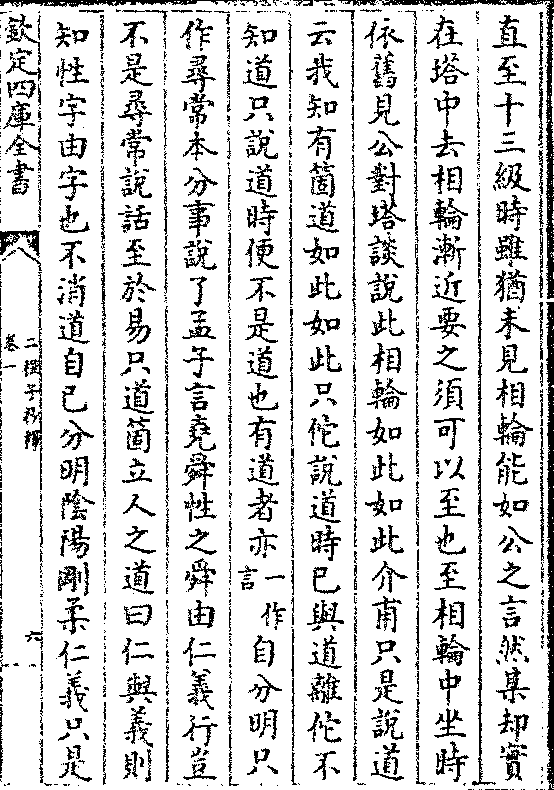 直至十三級時雖猶未見相輪能如公之言然某却實
在塔中去相輪漸近要之須可以至也至相輪中坐時
依舊見公對塔談說此相輪如此如此介甫只是說道
云我知有箇道如此如此只佗說道時已與道離佗不
知道只說道時便不是道也有道者亦一作言自分明只
作尋常本分事說了孟子言堯舜性之舜由仁義行豈
不是尋常說話至於易只道箇立人之道曰仁與義則
知性字由字也不消道自已分明陰陽剛柔仁義只是
欽定四庫全書
卷一
二程子抄釋
六